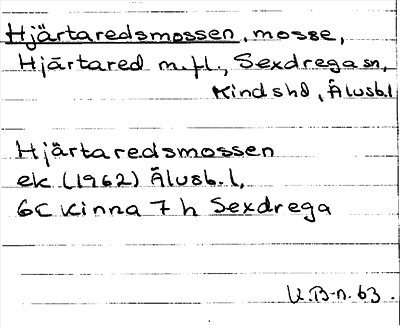 Hjärtaredsmossen, mosse,
Hjärtared m.fl., Sexdrega sn,
Kinds hd, Älvsb.l
Hjärtaredsmossen
ek (1962) Älvsb.l,
6C Kinna 7 h Sexdrega
K.B-n. 63.